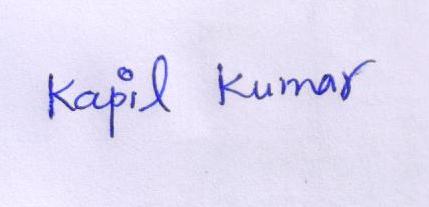 Kapil Kumar